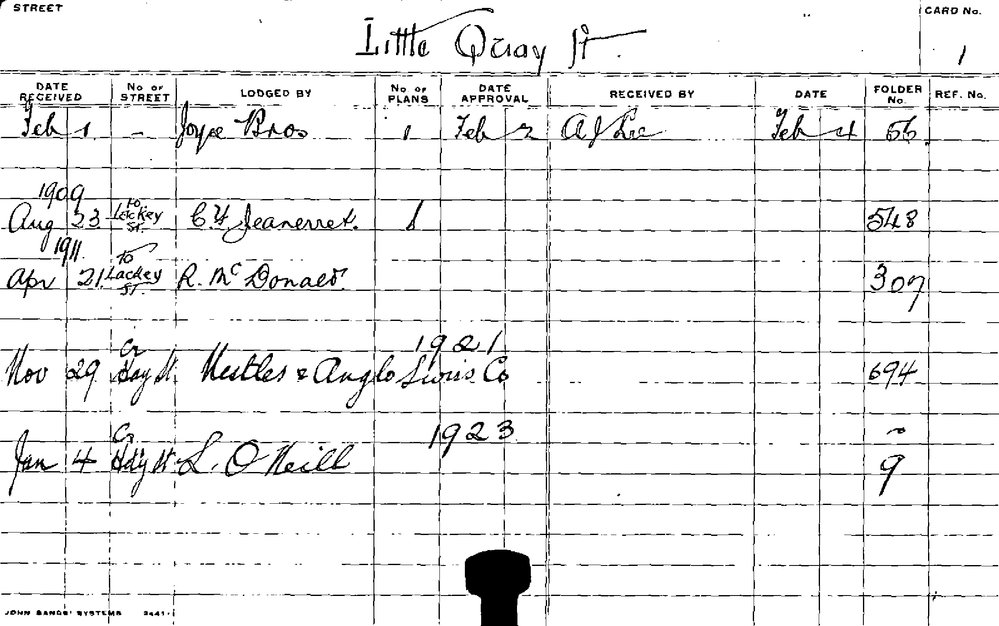 STREET
CARD No.
Little Quay St.
1
DATE RECEIVED No OF STREET LODGED BY No OF PLANS DATE APPROVAL RECEIVED BY DATE FOLDER No. REF. No.
Feb 1 - Joyce Bros 1 Feb 2 A J Lee Feb 4 56
1909
to
Aug 23 Lackey St. C Y Jeanerret. 1 548
1911
to
Apr 21 Lackey St. R. McDonald. 307
1921
Cr
Nov 29 Hay St. Nestles & Anglo Swiss Co 694
1923
Cr
Jan 4 Hay St L. O'Neill 9
JOHN SANDS' SYSTEMS